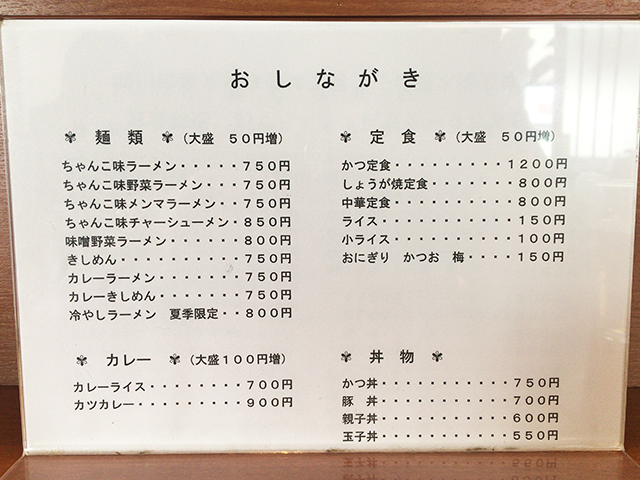 おしながき
✾ 麺類 ✾ （大盛 ５０円増）
ちゃんこ味ラーメン・・・・・７５０円
ちゃんこ味野菜ラーメン・・・７５０円
ちゃんこ味メンマラーメン・・７５０円
ちゃんこ味チャーシューメン・８５０円
味噌野菜ラーメン・・・・・・８００円
きしめん・・・・・・・・・・７５０円
カレーラーメン・・・・・・・７５０円
カレーきしめん・・・・・・・７５０円
冷やしラーメン 夏季限定・・８００円
✾ カレー ✾ （大盛１００円増）
カレーライス・・・・・・・・７００円
カツカレー・・・・・・・・・９００円
✾ 定食 ✾ （大盛 ５０円増）
かつ定食・・・・・・・・・・１２００円
しょうが焼定食・・・・・・・・８００円
中華定食・・・・・・・・・・・８００円
ライス・・・・・・・・・・・・１５０円
小ライス・・・・・・・・・・・１００円
おにぎり かつお 梅・・・・１５０円
✾ 丼物 ✾
かつ丼・・・・・・・・・・・・７５０円
豚 丼・・・・・・・・・・・・７００円
親子丼・・・・・・・・・・・・６００円
玉子丼・・・・・・・・・・・・５５０円